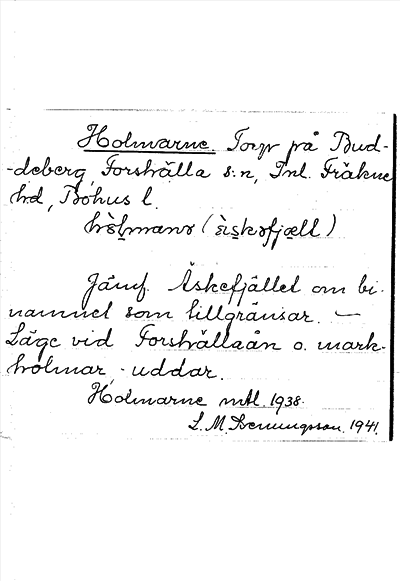 Holmarne. Torp på Bud-
-deberg, Forshälla s:n, Inl. Fräkne
hd, Bohus l.
hòlmanə (ìskəfjæll)
Jämf. Äskefjället om bi-
namnet som tillgränsar. —
Läge vid Forshällaån o. mark-
holmar, -uddar.
Holmarne mtl. 1938.
L. M. Svenungsson. 1941.